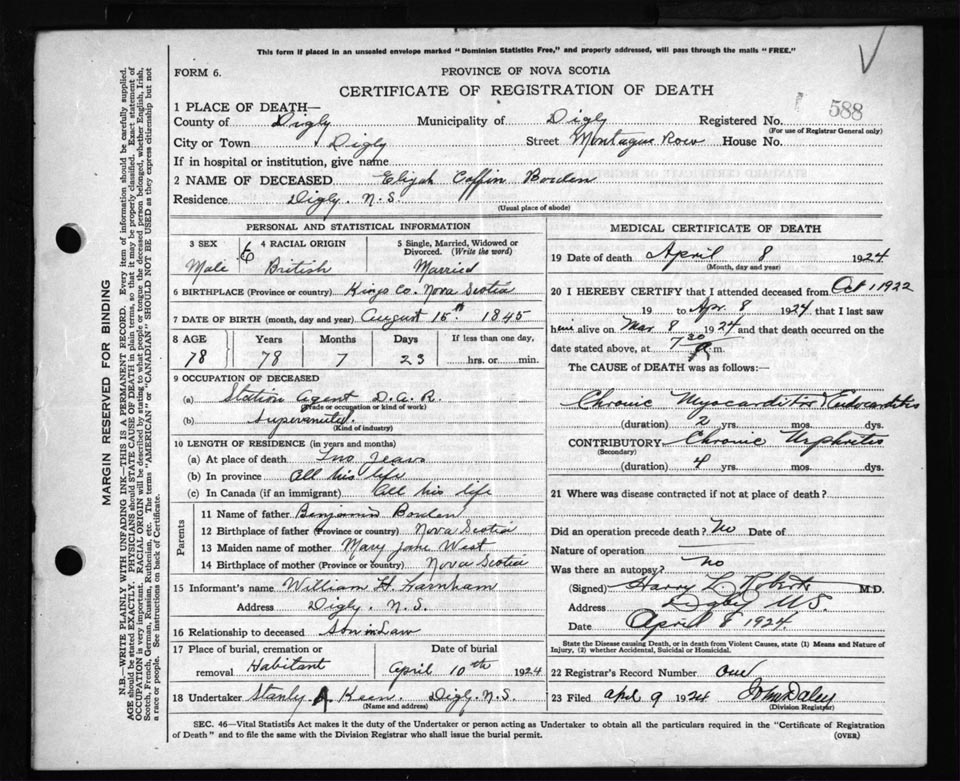 This form if placed in an unsealed envelope marked "Dominion Statistics Free," and properly addressed, will pass through the mails "FREE."
FORM 6.
PROVINCE OF NOVA SCOTIA
CERTIFICATE OF REGISTRATION OF DEATH
588
1 PLACE OF DEATH—
County of Digby Municipality of Digby Registered No.
(For use of Registrar General only)
City or Town Digby Street Montague Row House No.
If in hospital or institution, give name
2 NAME OF DECEASED Elijah Coffin Borden
Residence Digby. N.S.
(Usual place of abode)
PERSONAL AND STATISTICAL INFORMATION
3 SEX 4 RACIAL ORIGIN 5 Single, Married, Widowed or Divorced. (Write the word)
Male 6 British Married
6 BIRTHPLACE (Province or country) Kings Co. Nova Scotia
7 DATE OF BIRTH (month, day and year) August 15th 1845
8 AGE Years Months Days If less than one day,
78 78 7 23 hrs. or min.
9 OCCUPATION OF DECEASED
(a) Station Agent D.A.R.
(Trade or occupation or kind of work)
(b)
(Kind of industry)
10 LENGTH OF RESIDENCE (in years and months)
(a) At place of death Two Years
(b) In province All his life
(c) In Canada (if an immigrant) All his life
Parents
11 Name of father Benjamin Borden
12 Birthplace of father (Province or country) Nova Scotia
13 Maiden name of mother Mary Jane West
14 Birthplace of mother (Province or country) Nova Scotia
15 Informant's name William H. Farnham
Address Digby. N.S.
16 Relationship to deceased Son in Law
17 Place of burial, cremation or removal Date of burial
Habitant April 10th 1924
18 Undertaker Stanly A Keen. Digby. N.S.
(Name and address)
MEDICAL CERTIFICATE OF DEATH
19 Date of death April 8 1924
(Month, day and year)
20 I HEREBY CERTIFY that I attended deceased from Oct 1 1922
19 to Apr. 8 1924 that I last saw
him alive on Mar 8 1924 and that death occurred on
date stated above, at 7 30 m.
The CAUSE of DEATH was as follows:—
Chronic Myocarditis & Endocarditis
(duration) 2 yrs. mos. dys.
CONTRIBUTORY Chronic Nephritis
(Secondary)
(duration) 4 yrs. mos. dys.
21 Where was disease contracted if not at place of death?
Did an operation precede death? No Date of
Nature of operation
Was there an autopsy? No
(Signed) Harry L. Roberts M.D.
Address Digby N.S.
Date April 8 1924.
State the Disease causing Death, or in death from Violent Causes, state (1) Means and Nature of Injury, (2) whether Accidental, Suicidal or Homicidal.
22 Registrar's Record Number One
23 Filed Apl 9 1924 John Daley
(Division Registrar)
SEC. 46—Vital Statistics Act makes it the duty of the Undertaker or person acting as Undertaker to obtain all the particulars required in the "Certificate of Registration
of Death" and to file the same with the Division Registrar who shall issue the burial permit.
(OVER)
MARGIN RESERVED FOR BINDING
N.B.—WRITE PLAINLY WITH UNFADING INK—THIS IS A PERMANENT RECORD. Every item of information should be carefully supplied.
AGE should be stated EXACTLY. PHYSICIANS should STATE CAUSE OF DEATH in plain terms, so that it may be properly classified. Exact statement of
OCCUPATION is very important. RACIAL ORIGIN will be described by stating to what people or tongue the deceased person belonged, whether English, Irish,
Scotch, French, German, Russian, Ruthenian, etc. The terms "AMERICAN" or "CANADIAN" SHOULD NOT BE USED as they express citizenship but not
a race or people. See instructions on back of Certificate.